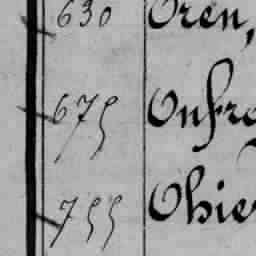 630 Oren,
675 Onfro
755 Ohie